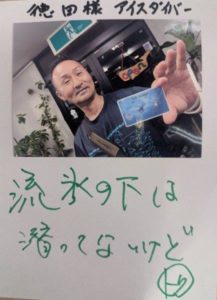 徳田様 アイスダイバー
OPEN
流氷の下は
潜ってないけど